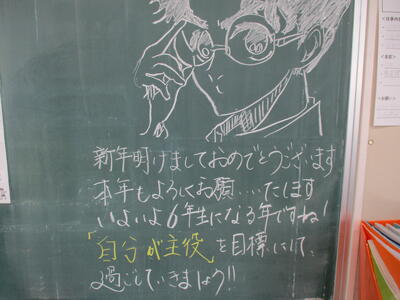 新年明けましておめでとうございます
本年もよろしくお願い....たします
いよいよ6年生になる年ですね！
「自分が主役」を目標にして、
過ごしていきましょう!!